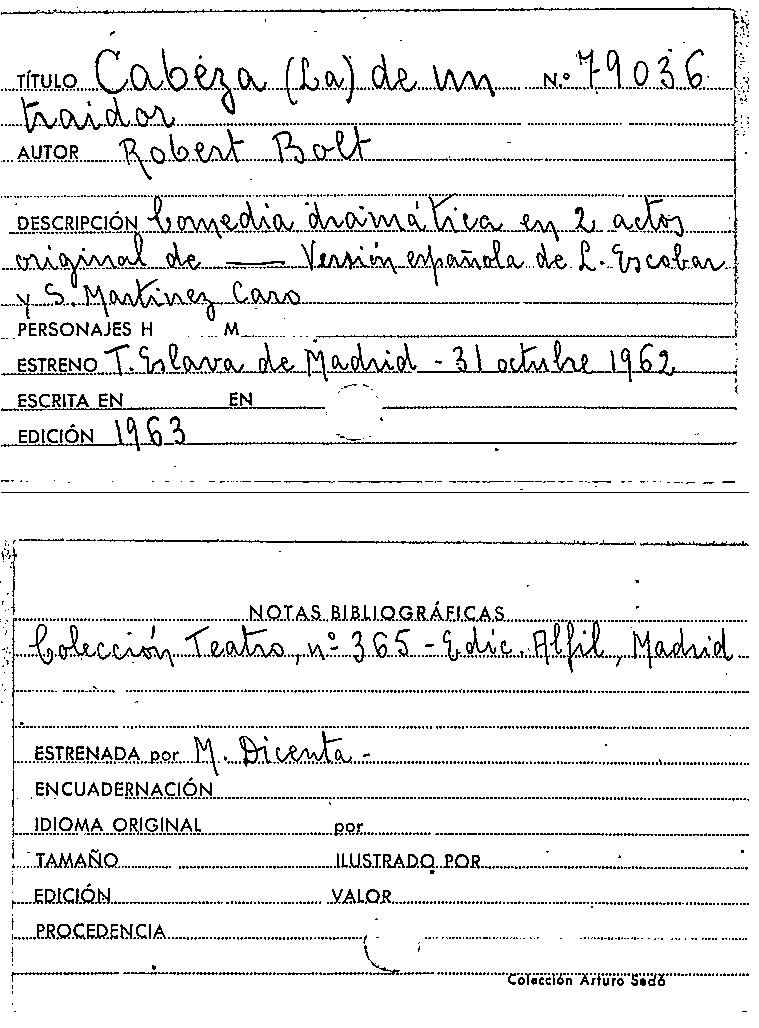 TÍTULO Cabeza (La) de un N.º 79036
traidor
AUTOR Robert Bolt
DESCRIPCIÓN Comedia dramática en 2 actos
original de —— Versión española de L. Escobar
y S. Martínez Caro
PERSONAJES H M
ESTRENO T. Eslava de Madrid - 31 octubre 1962
ESCRITA EN EN
EDICIÓN 1963
NOTAS BIBLIOGRÁFICAS
Colección Teatro, nº 365 - Edic. Alfil, Madrid
ESTRENADA por M. Dicenta -
ENCUADERNACIÓN
IDIOMA ORIGINAL por
TAMAÑO ILUSTRADO POR
EDICIÓN VALOR
PROCEDENCIA
Colección Arturo Sedó